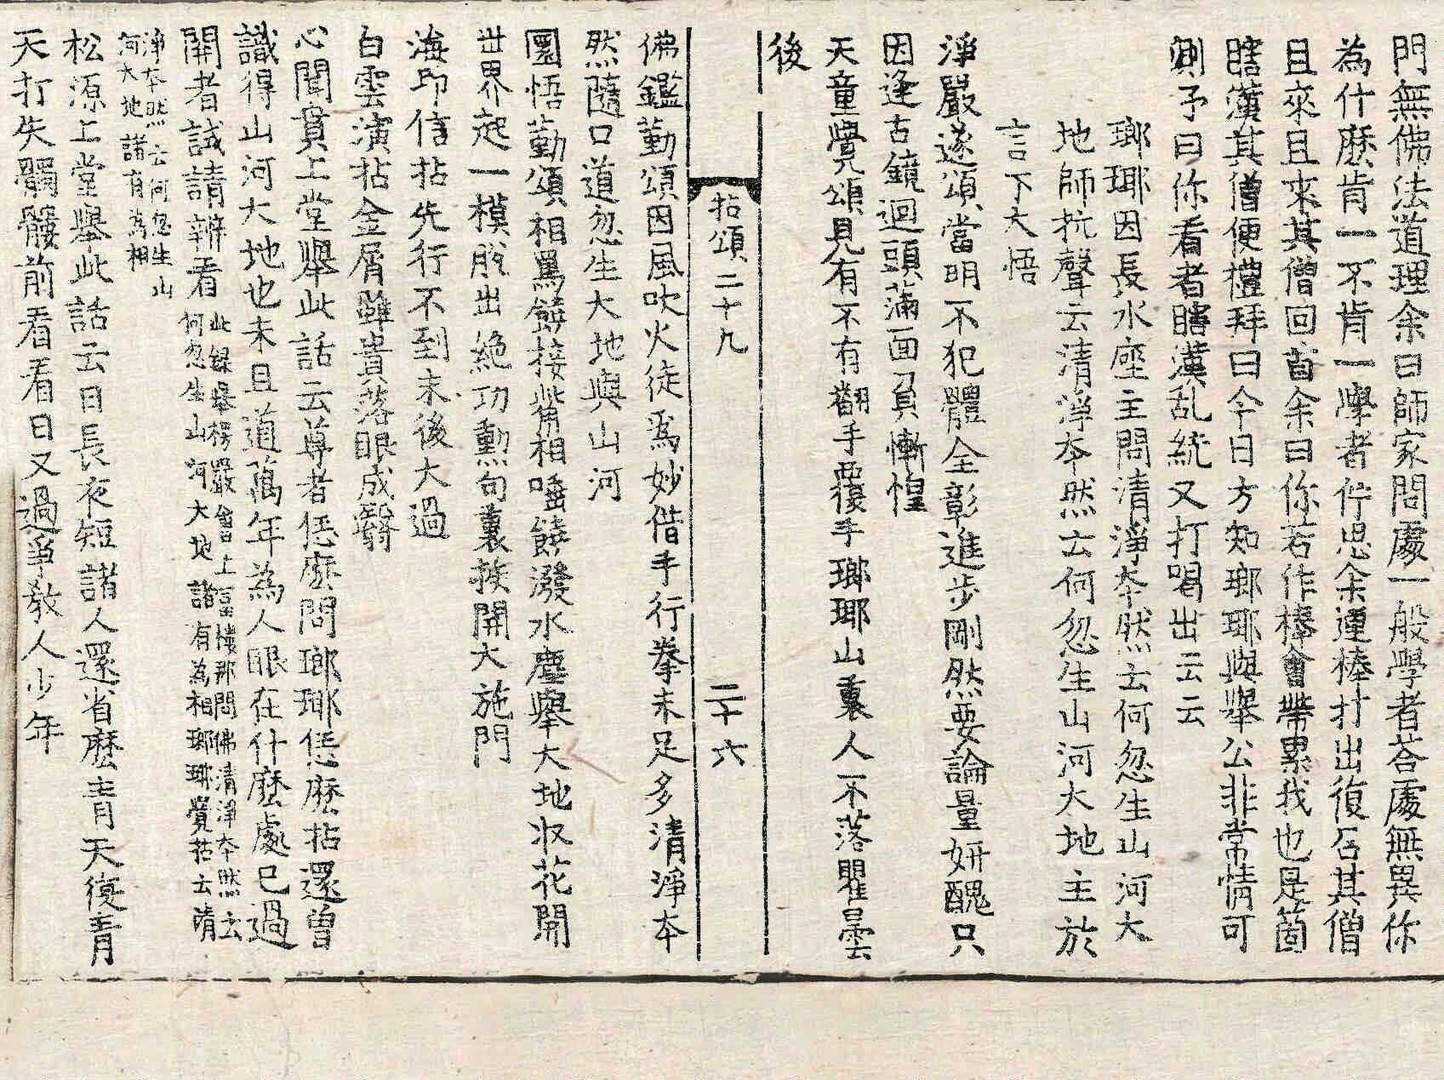 門無佛法道理余曰師家問處一般學者荅處無異你
為什麽肯一不肯一學者佇思余連棒打出復召其僧
且來且來其僧回首余曰你若作棒會帶累我也是箇
瞎漢其僧便禮拜曰今日方知瑯琊與舉公非常情可
測予曰你看者瞎漢乱統又打喝出云云
瑯琊因長水座主問清淨夲然云何忽生山河大
地師抗聲云清淨夲然云何忽生山河大地主於
言下大悟
淨嚴遂頌當明不犯體全彰進步剛然要論量妍醜只
因逢古鏡迴頭滿面負慚惶
天童覺頌見有不有翻手覆手瑯琊山裏人不落瞿曇
後
拈頌二十九
二十六
佛鑑勤頌因風吹火徒爲妙借手行拳未足多清淨夲
然隨口道忽生大地與山河
圜悟勤頌相罵饒接觜相唾饒潑水塵舉大地收花開
世界起一模脫出絶功勲句裏挨開大施門
海印信拈先行不到末後大過
白雲演拈金屑雖貴落眼成翳
心聞賁上堂舉此話云尊者恁麽問瑯琊恁麽拈還曽
識得山河大地也未且道萬年為人眼在什麽處已過
開者試請辨看
此録舉楞嚴會上冨樓那問佛清淨夲然云
何忽生山河大地 諸有為相瑯琊覺拈云清
淨夲然云何忽生山
河大地 諸有為相
松源上堂舉此話云日長夜短諸人還省麽青天復青
天打失髑髏前看看日又過爭教人少年